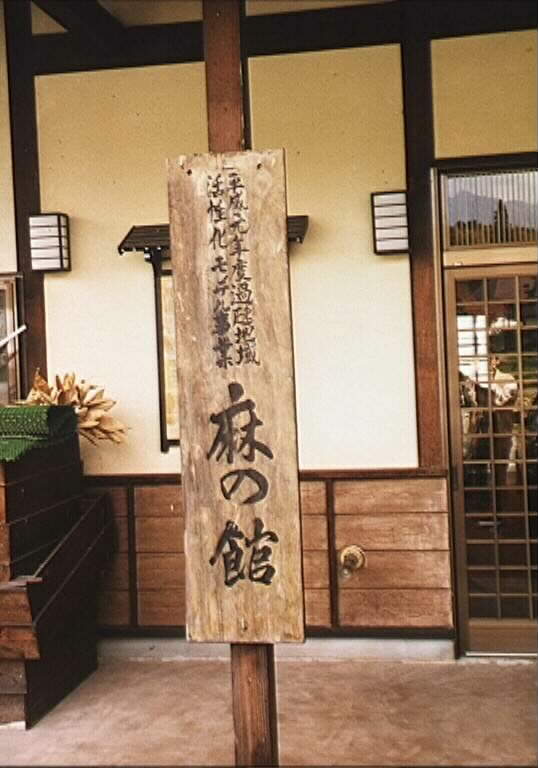 平成元年度過疎地域
活性化モデル事業
麻の館